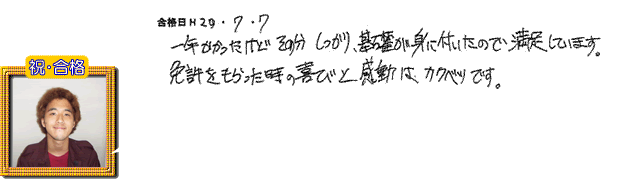 合格日 H29・7・7
一年かかったけど その分 しっかり、基礎が身に付いたので、満足しています。
免許をもらった時の喜びと感動は、カクベツです。
祝・合格